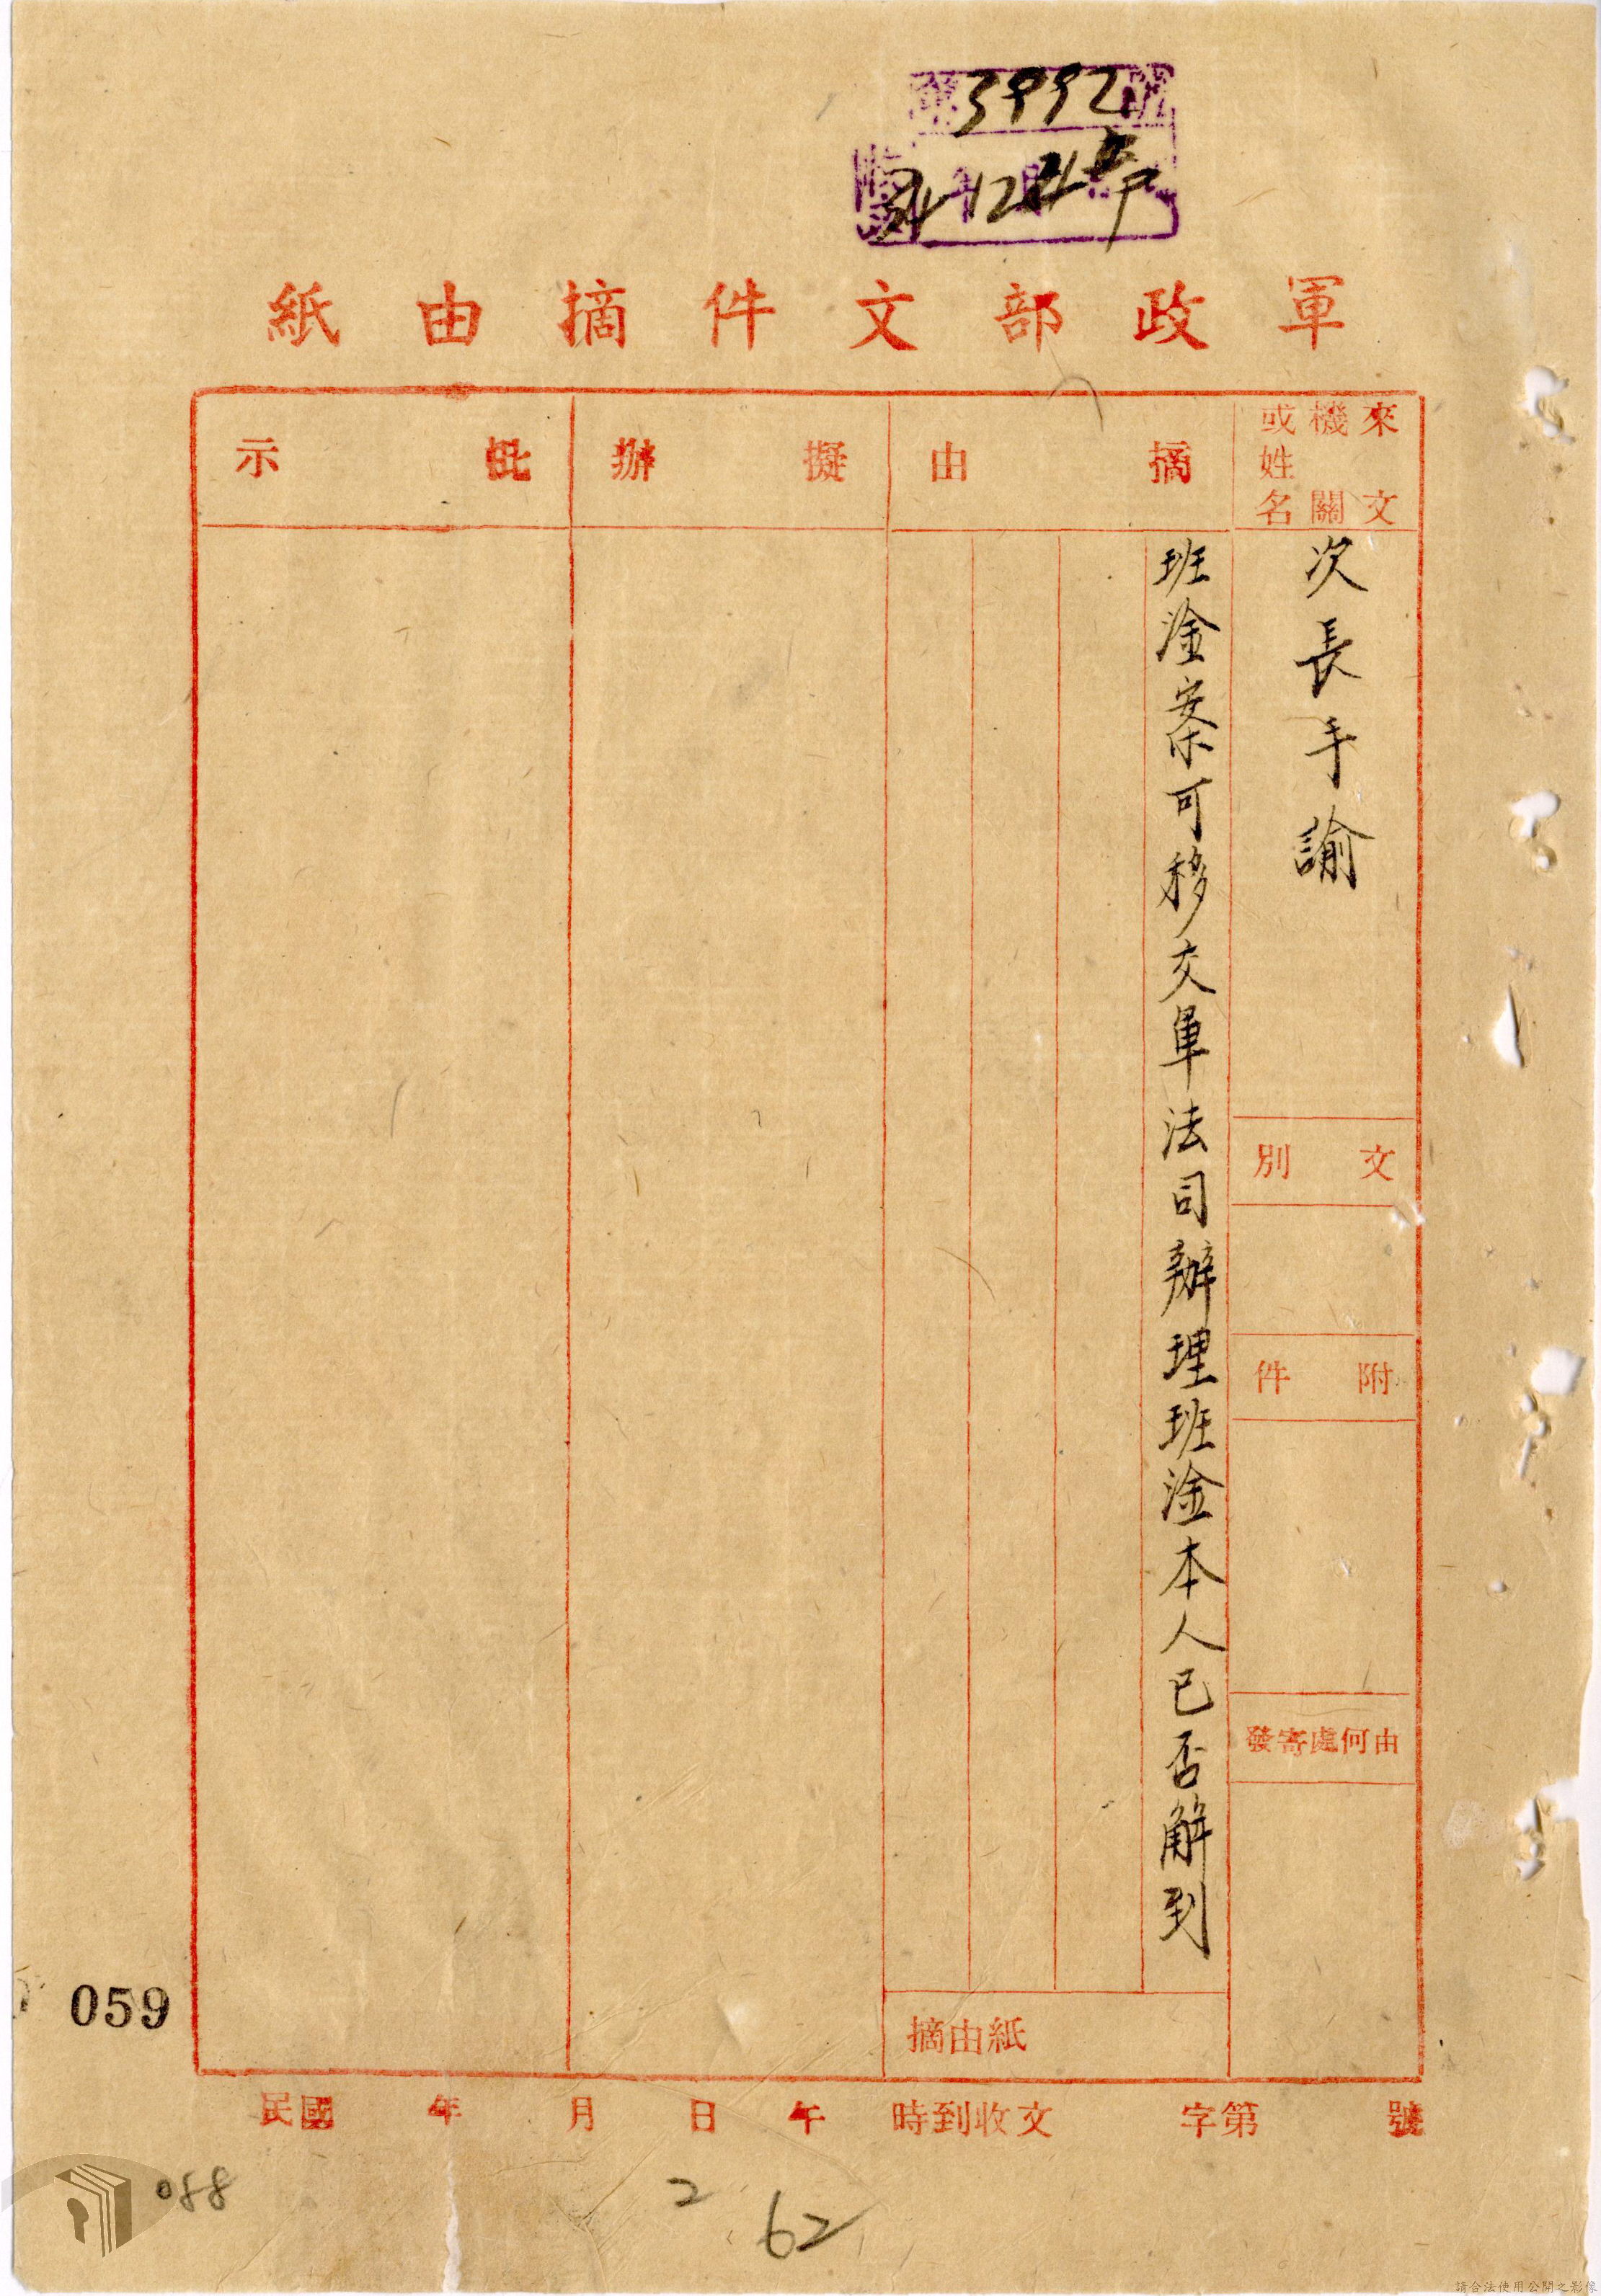 3992
34 12
軍政部文件摘由紙
來文機關或姓名
次長手諭
文別
附件
由何處寄發
摘由
班淦案可移交軍法司辦理班淦本人已否解到
摘由紙
擬辦
批示
民國 年 月 日 午 時到收文 字第 號
059
088
2
62
請合法使用公開之影像